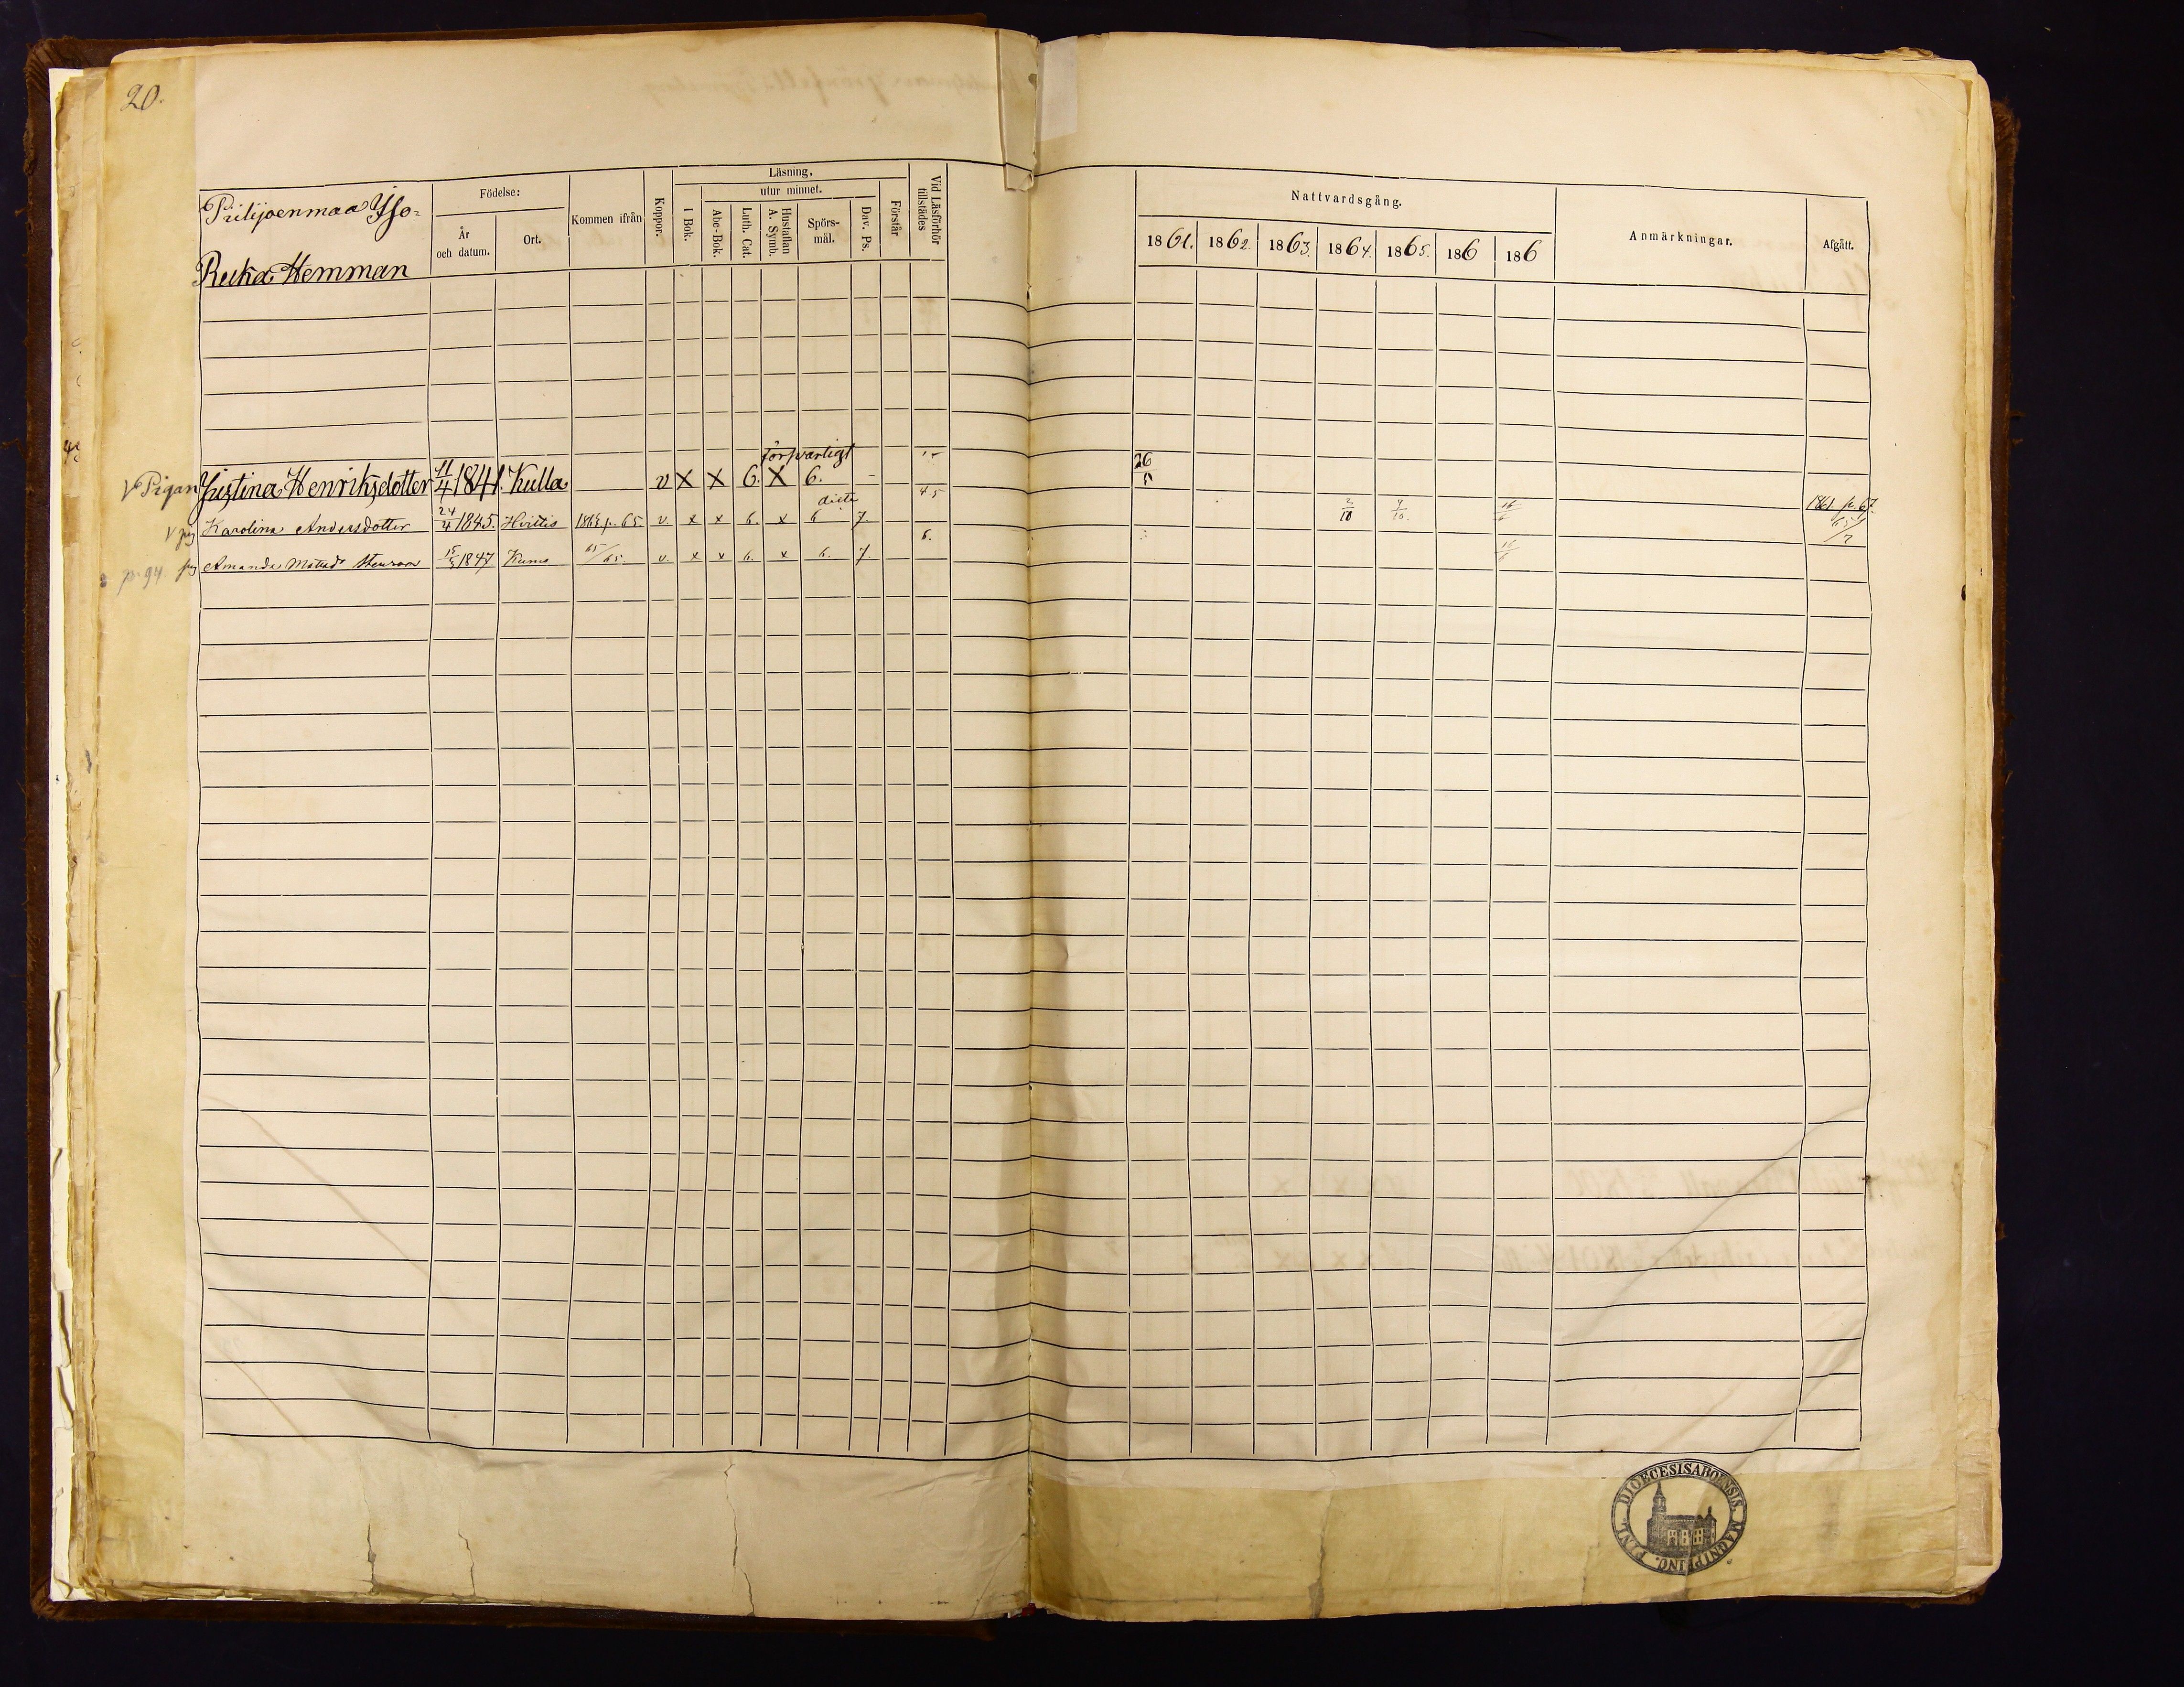 20.
Piilijoenmaa Yso=
Recka Hemman
Födelse:
År och datum.
Ort.
Kommen ifrån
Koppor.
Läsning,
utur minnet.
I Bok.
Abc-Bok.
Luth. Cat.
Hustaflan A. Symb.
Spörs-mål.
Dav. Ps.
Förstår
Vid Läsförhör tillstädes
Nattvardsgång.
1861. 1862. 1863. 1864. 1865. 186 186
Anmärkningar.
Afgått.
försvarligt
v Pigan Justina Henriksdotter 11/4 1841. Kulla v X X 6. X 6. - 26/5 1861 p. 67.
ditto
v pig Karolina Andersdotter 24/4 1845. Hvittis 1863 p. 65. v. x x 6. x 6 7. 45 2/10 9/10. 16/6 65/7
p. 94. pig Amanda Matsd. Stenroos 15/5 1847 Kumo 65/65. v. x x 6. x 6. 7. 6. 16/6
DIOECESIS ABOENSIS. MAGNI PRINC. FINL.